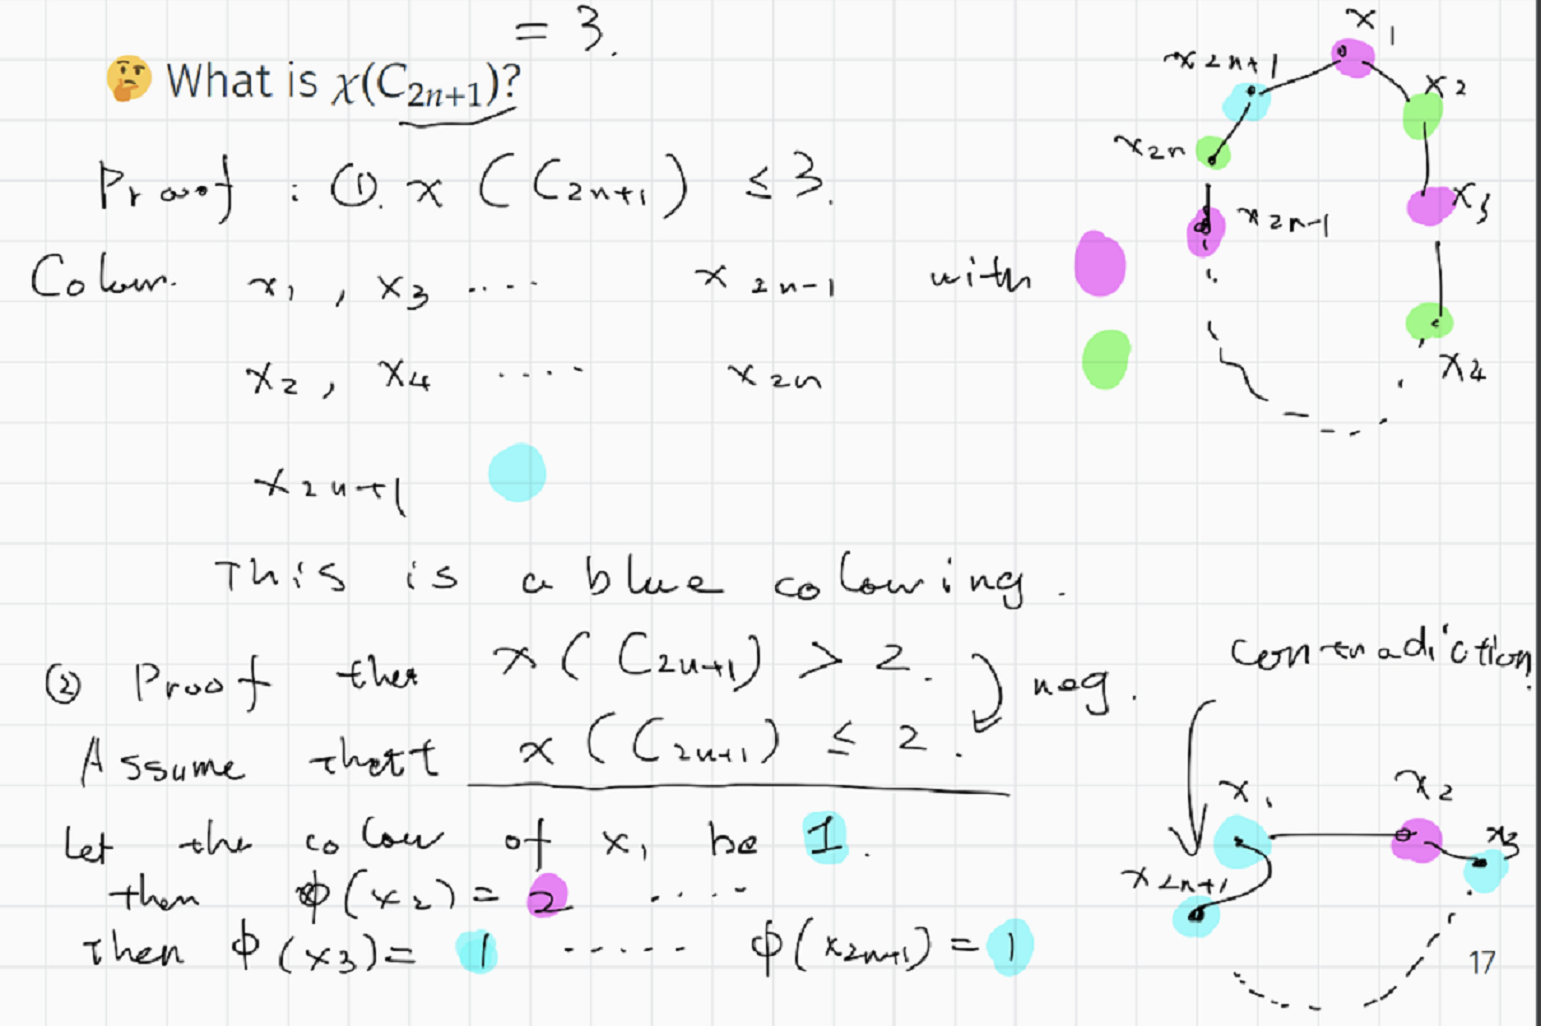 = 3.
🤔 What is χ(C₂ₙ₊₁)?
Proof : ①. χ (C₂ₙ₊₁) ≤ 3.
Colour. x₁ , x₃ .... x₂ₙ₋₁ with
x₂ , x₄ .... x₂ₙ
x₂ₙ₊₁
This is a blue colouring .
② Proof that χ ( C₂ₙ₊₁) > 2 . neg.
Assume that χ ( C₂ₙ₊₁) ≤ 2 .
Let the colour of x₁ be 1 .
then ϕ(x₂) = 2 .....
then ϕ(x₃)= 1 ..... ϕ(x₂ₙ₊₁) = 1
x₁
x₂ₙ₊₁
x₂
x₂ₙ
x₃
x₂ₙ₋₁
x₄
contradiction.
x₁ x₂
x₃
x₂ₙ₊₁
17